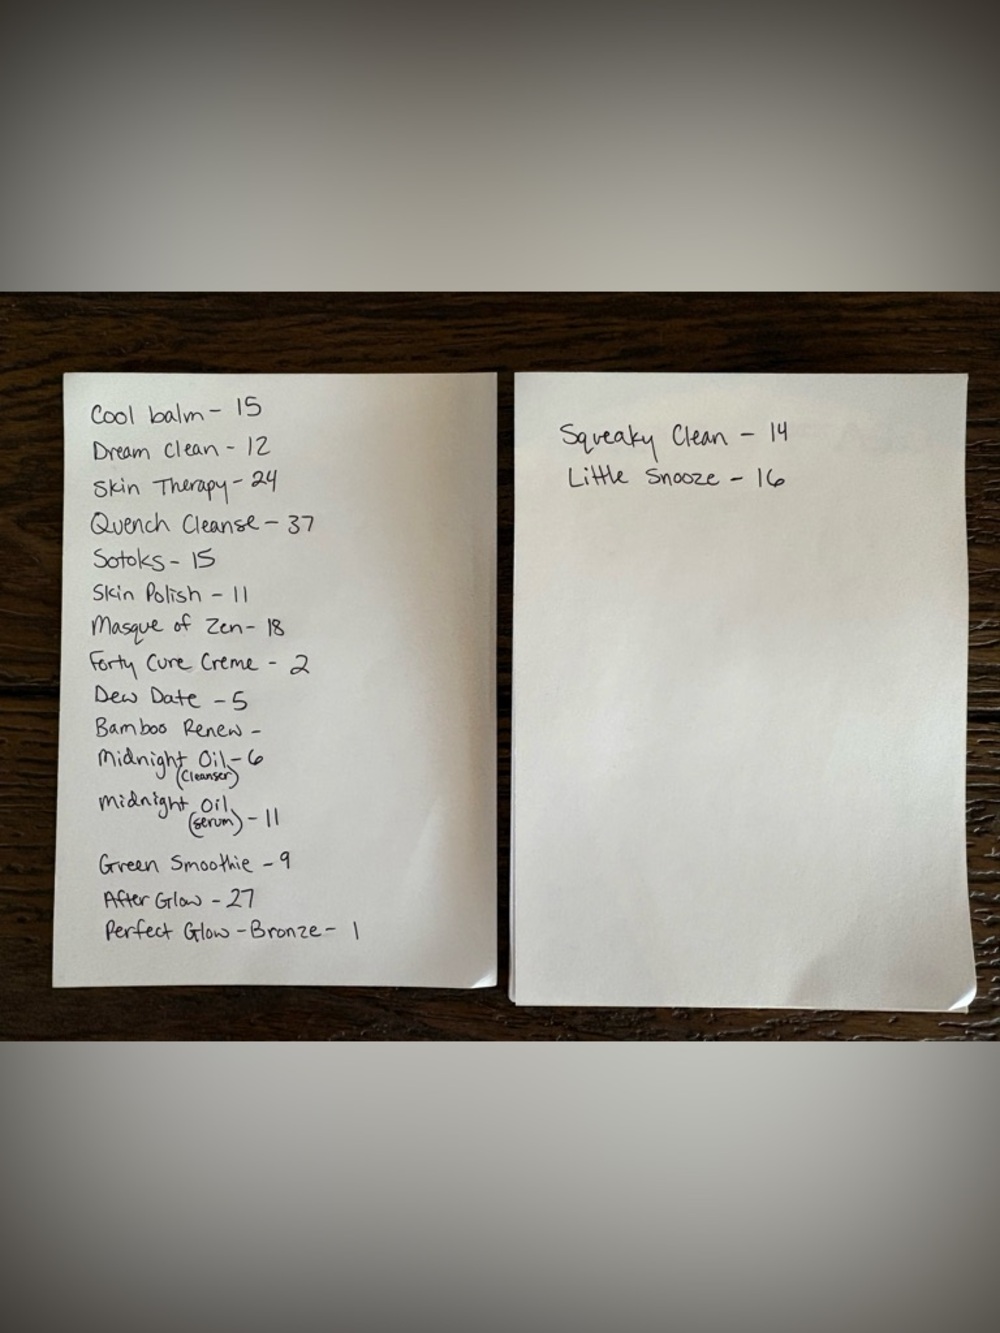 Cool balm - 15
Dream Clean - 12
Skin Therapy - 24
Quench Cleanse - 37
Sotoks - 15
Skin Polish - 11
Masque of Zen - 18
Forty Cure Creme - 2
Dew Date - 5
Bamboo Renew -
Midnight Oil - 6
(Cleanser)
Midnight Oil
(serum) - 11
Green Smoothie - 9
After Glow - 27
Perfect Glow - Bronze - 1
Squeaky Clean - 14
Little Snooze - 16